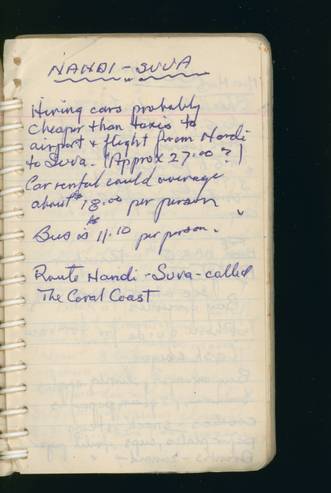 NANDI - SUVA
Hiring cars probably
cheaper than taxis to
airport & flight from Nandi
to Suva. (Approx 27.00 ?)
Car rental could average
about $18.00 per person
Bus is $11.10 per person.
Route Nandi - Suva - called
The Coral Coast